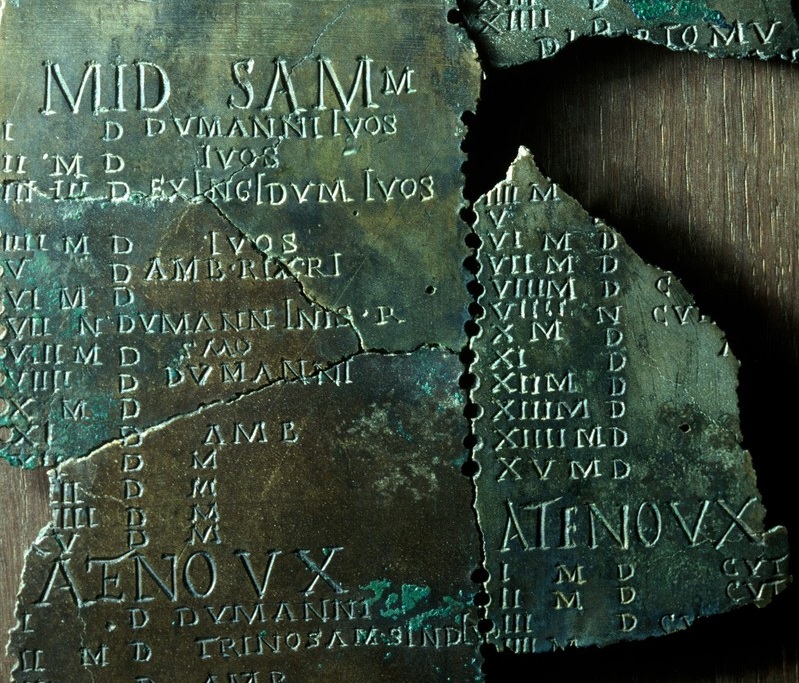 MID SAM M
I D DVMANNI IVOS
II M D IVOS
III D EX INGIDVM IVOS
IIII M D IVOS
V D AMB RIXRI
VI M D
VII N DVMANN INIS R
VIII M D SMO
VIIII D DVMANNI
X M D
XI D AMB
D M
II D M
IIII D M
V D M
ATENOVX
I D DVMANNI
II M D TRINOSAM SINDI
D AMB
XIIII D
IIII M
V
VI M D
VII M D
VIII M D C
VIIII N CV
X M D
XI D
XII M D
XIII M D
XIIII M D
XV M D
ATENOVX
I M D CVT
II M D CVT
III D CV
IIII M